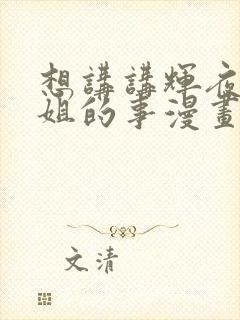 想講講輝夜
姐的事漫畫
文清